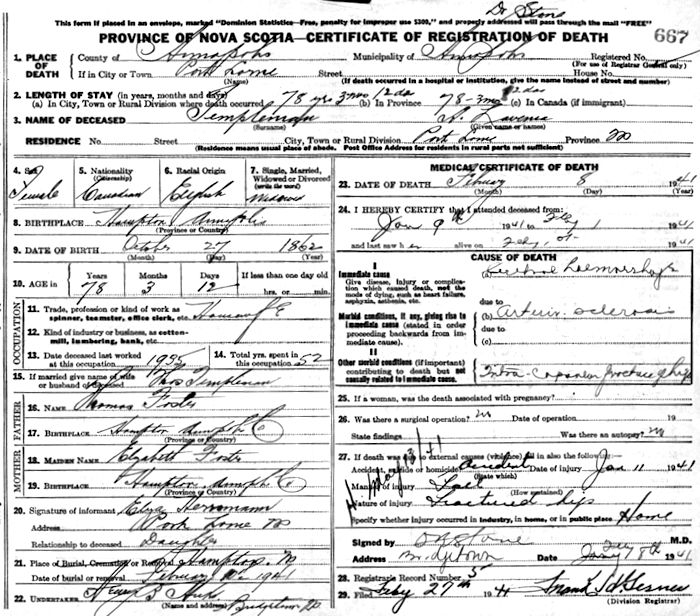 Dr Stone
This form if placed in an envelope, marked "Dominion Statistics—Free, penalty for improper use $300," and properly addressed will pass through the mail "FREE"
PROVINCE OF NOVA SCOTIA—CERTIFICATE OF REGISTRATION OF DEATH 667
1. PLACE OF DEATH County of Annapolis Municipality of Annapolis Registered No.
(For use of Registrar General only)
If in City or Town Port Lorne Street House No.
(Name) (If death occurred in a hospital or institution, give the name instead of street and number)
2. LENGTH OF STAY (in years, months and days)
(a) In City, Town or Rural Division where death occurred 78 yrs 3 mos 12 da (b) In Province 78-3 mos 12 das (c) In Canada (if immigrant)
3. NAME OF DECEASED Templeman Lavenia
(Surname) (Given name or names)
RESIDENCE No. Street City, Town or Rural Division Port Lorne Province NS
(Residence means usual place of abode. Post Office Address for residents in rural parts not sufficient)
4. Sex Female
5. Nationality (Citizenship) Canadian
6. Racial Origin English
7. Single, Married, Widowed or Divorced (write the word) Widowed
8. BIRTHPLACE Hampton Annapolis
(Province or Country)
9. DATE OF BIRTH October 27 1862
(Month) (Day) (Year)
10. AGE Years 78 Months 3 Days 12 If less than one day old hrs. or min.
OCCUPATION
11. Trade, profession or kind of work as spinner, teamster, office clerk, etc.
12. Kind of industry or business, as cotton-mill, lumbering, bank, etc.
13. Date deceased last worked at this occupation 1935
14. Total yrs. spent in this occupation 52
15. If married give name of wife or husband of deceased Templeman
FATHER
16. NAME Thomas Foster
17. BIRTHPLACE Hampton Annap. Co
(Province or Country)
MOTHER
18. MAIDEN NAME Elizabeth Foster
19. BIRTHPLACE Hampton Annap. Co
(Province or Country)
20. Signature of informant
Address Port Lorne NS
Relationship to deceased Daughter
21. Place of Burial, Cremation or Removal Hampton, NS
Date of burial or removal February 1941
22. UNDERTAKER
(Name and address) Bridgetown NS
MEDICAL CERTIFICATE OF DEATH
23. DATE OF DEATH February 8 1941
(Month) (Day) (Year)
24. I HEREBY CERTIFY that I attended deceased from:
Jan 9th 1941 to Feby 1941
and last saw her alive on Feby 1941
CAUSE OF DEATH
I
Immediate cause
Give disease, injury or complication which caused death, not the mode of dying, such as heart failure, asphyxia, asthenia, etc.
(a) Cerebral haemorrhage
due to
Morbid conditions, if any, giving rise to immediate cause (stated in order proceeding backwards from immediate cause).
(b) Arterio-sclerosis
due to
(c)
II
Other morbid conditions (if important) contributing to death but not causally related to immediate cause.
Intra-capsular fracture hip
25. If a woman, was the death associated with pregnancy?
26. Was there a surgical operation? No Date of operation 19
State findings Was there an autopsy? No
27. If death was due to external causes (violence) fill in also the following:
Accident, suicide or homicide? accident Date of injury Jan 11 1941
(State which)
Manner of injury Fall
(How sustained)
Nature of injury Fractured hip
Specify whether injury occurred in industry, in home, or in public place Home
Signed by Stone M.D.
Address Bridgetown Date Feby 8th 1941
28. Registrars Record Number 5
29. Filed Feby 27th 1941
(Division Registrar)